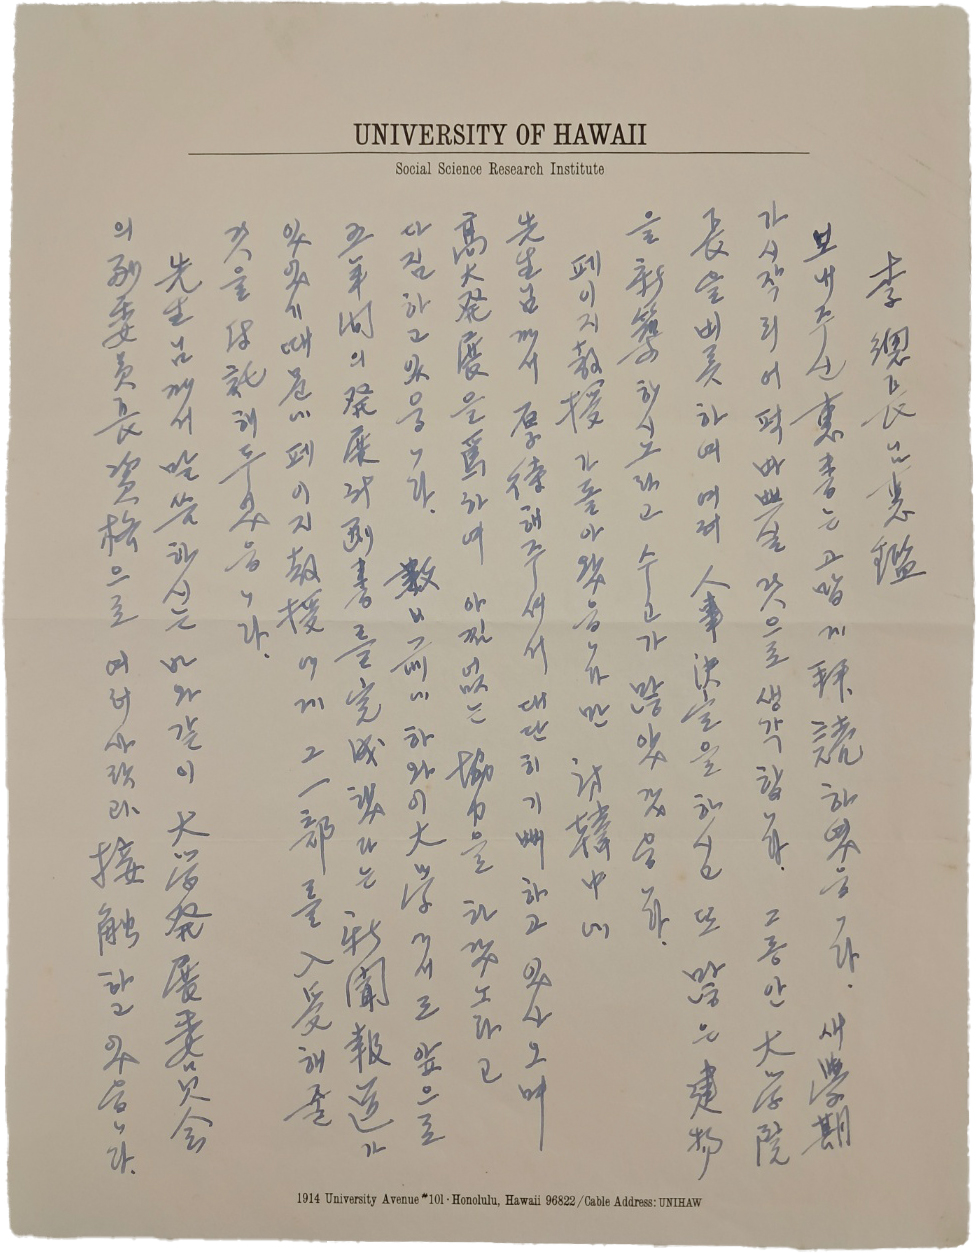 UNIVERSITY OF HAWAII
Social Science Research Institute
李總長님 惠鑑
보내주신 惠書는 고맙게 拜読하였음니다. 새學期
가 시작되어 퍽 바쁘실 것으로 생각합니다. 그동안 大学院
長을 비롯하여 여러 人事決定을 하심 또 많은 建物
을 新築하시노라고 수고가 많았겠음니다.
페이지敎授가 돌아왔음니다만 訪韓中에
先生님께서 厚待해주셔서 대단히 기뻐하고 있사오며
高大発展을 爲하여 아낌없는 協力을 하겠노라고
다짐하고 있음니다. 하와이大学에서도 앞으로
五年间의 発展計劃書를 完成했다는 新聞報道가
있었기 때문에 페이지敎授에게 그 一部를 入受해줄
것을 付託해두었음니다.
先生님께서 말씀하신 바와같이 大学発展委员会
의 副委員長資格으로 여러사람과 接触하고 있음니다.
1914 University Avenue #101 · Honolulu, Hawaii 96822/Cable Address: UNIHAW